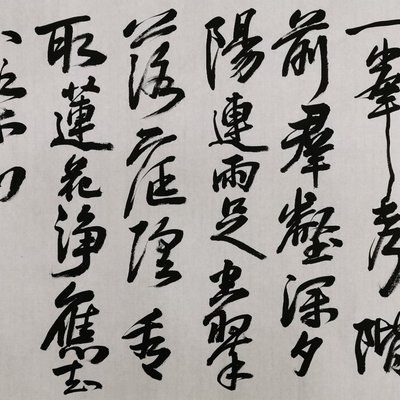 一峯秀階
前羣壑深夕
陽連雨足空翠
落庭陰看
取蓮花淨應知